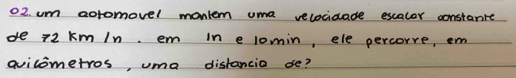 02. um aotomovel mantem uma velocidade escalar constante
de 72 km/n. em 1n e 10min, ele percorre, em
quicômetros, uma distancia de?